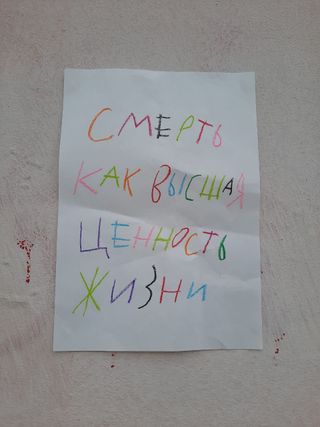 СМЕРТЬ
КАК ВЫСШАЯ
ЦЕННОСТЬ
ЖИЗНИ